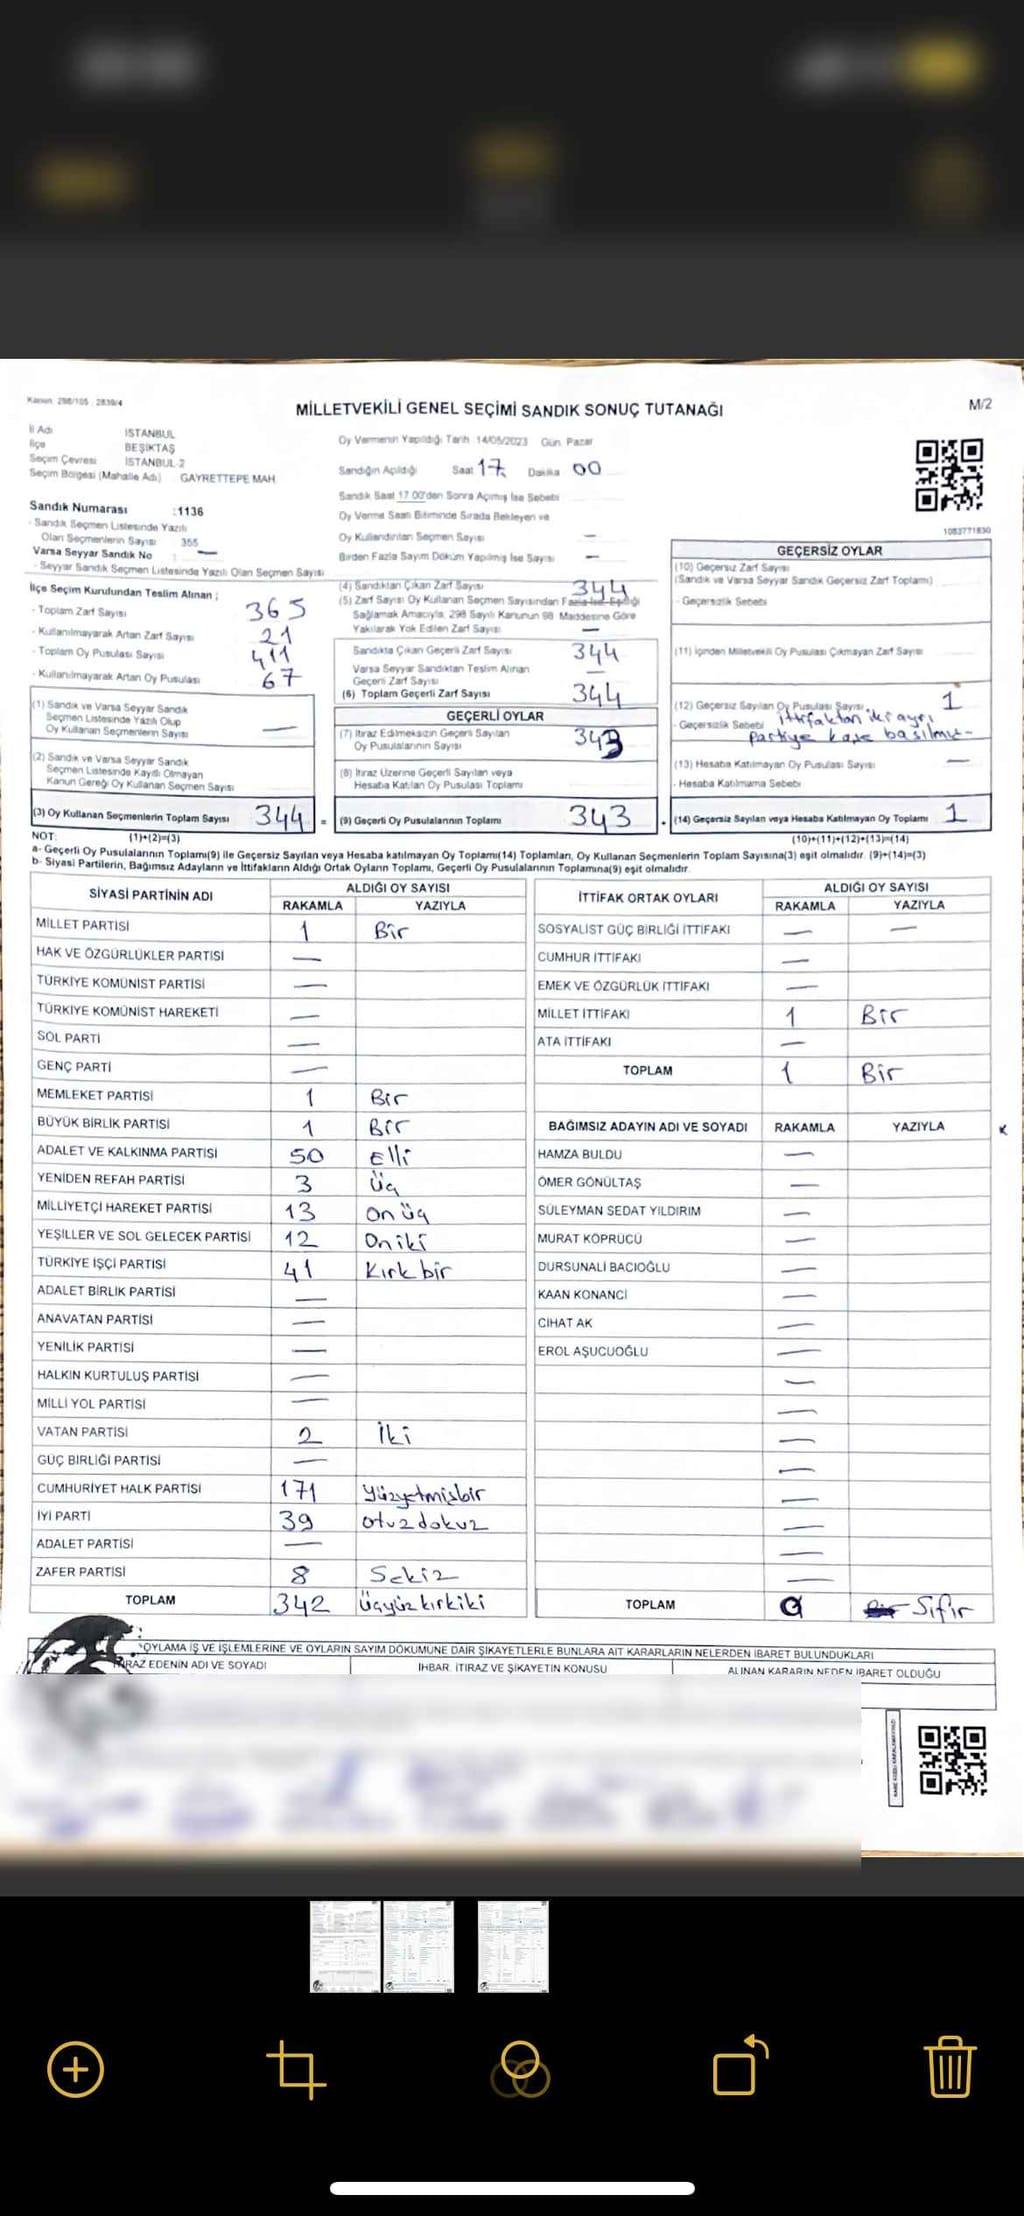 Kanun: 298/105 , 2839/4
MİLLETVEKİLİ GENEL SEÇİMİ SANDIK SONUÇ TUTANAĞI
M/2
İl Adı İSTANBUL
İlçe BEŞİKTAŞ
Seçim Çevresi İSTANBUL-2
Seçim Bölgesi (Mahalle Adı) GAYRETTEPE MAH.
Sandık Numarası :1136
- Sandık Seçmen Listesinde Yazılı
Olan Seçmenlerin Sayısı 355
Varsa Seyyar Sandık No : —
- Seyyar Sandık Seçmen Listesinde Yazılı Olan Seçmen Sayısı
İlçe Seçim Kurulundan Teslim Alınan ;
- Toplam Zarf Sayısı 365
- Kullanılmayarak Artan Zarf Sayısı 21
- Toplam Oy Pusulası Sayısı 411
- Kullanılmayarak Artan Oy Pusulası 67
(1) Sandık ve Varsa Seyyar Sandık
Seçmen Listesinde Yazılı Olup
Oy Kullanan Seçmenlerin Sayısı —
(2) Sandık ve Varsa Seyyar Sandık
Seçmen Listesinde Kayıtlı Olmayan
Kanun Gereği Oy Kullanan Seçmen Sayısı
(3) Oy Kullanan Seçmenlerin Toplam Sayısı 344 =
Oy Vermenin Yapıldığı Tarih :14/05/2023 Gün: Pazar
Sandığın Açıldığı Saat 17 Dakika 00
Sandık Saat 17.00'den Sonra Açılmış İse Sebebi
Oy Verme Saati Bitiminde Sırada Bekleyen ve
Oy Kullandırılan Seçmen Sayısı —
Birden Fazla Sayım Döküm Yapılmış İse Sayısı —
(4) Sandıktan Çıkan Zarf Sayısı 344
(5) Zarf Sayısı Oy Kullanan Seçmen Sayısından Fazla İse, Eşitliği
Sağlamak Amacıyla, 298 Sayılı Kanunun 98. Maddesine Göre
Yakılarak Yok Edilen Zarf Sayısı —
Sandıkta Çıkan Geçerli Zarf Sayısı 344
Varsa Seyyar Sandıktan Teslim Alınan
Geçerli Zarf Sayısı —
(6) Toplam Geçerli Zarf Sayısı 344
GEÇERLİ OYLAR
(7) İtiraz Edilmeksizin Geçerli Sayılan
Oy Pusulalarının Sayısı 343
(8) İtiraz Üzerine Geçerli Sayılan veya
Hesaba Katılan Oy Pusulası Toplamı
(9) Geçerli Oy Pusulalarının Toplamı 343
1083771830
GEÇERSİZ OYLAR
(10) Geçersiz Zarf Sayısı
(Sandık ve Varsa Seyyar Sandık Geçersiz Zarf Toplamı)
- Geçersizlik Sebebi
(11) İçinden Milletvekili Oy Pusulası Çıkmayan Zarf Sayısı
(12) Geçersiz Sayılan Oy Pusulası Sayısı 1
- Geçersizlik Sebebi ittifaktan iki ayrı
partiye kaşe basılmış-
(13) Hesaba Katılmayan Oy Pusulası Sayısı —
- Hesaba Katılmama Sebebi
(14) Geçersiz Sayılan veya Hesaba Katılmayan Oy Toplamı 1
NOT: (1)+(2)=(3) (10)+(11)+(12)+(13)=(14)
a- Geçerli Oy Pusulalarının Toplamı(9) ile Geçersiz Sayılan veya Hesaba katılmayan Oy Toplamı(14) Toplamları, Oy Kullanan Seçmenlerin Toplam Sayısına(3) eşit olmalıdır. (9)+(14)=(3)
b- Siyasi Partilerin, Bağımsız Adayların ve İttifakların Aldığı Ortak Oyların Toplamı, Geçerli Oy Pusulalarının Toplamına(9) eşit olmalıdır.
SİYASİ PARTİNİN ADI ALDIĞI OY SAYISI
RAKAMLA YAZIYLA
MİLLET PARTİSİ 1 Bir
HAK VE ÖZGÜRLÜKLER PARTİSİ —
TÜRKİYE KOMÜNİST PARTİSİ —
TÜRKİYE KOMÜNİST HAREKETİ —
SOL PARTİ —
GENÇ PARTİ —
MEMLEKET PARTİSİ 1 Bir
BÜYÜK BİRLİK PARTİSİ 1 Bir
ADALET VE KALKINMA PARTİSİ 50 Elli
YENİDEN REFAH PARTİSİ 3 Üç
MİLLİYETÇİ HAREKET PARTİSİ 13 On üç
YEŞİLLER VE SOL GELECEK PARTİSİ 12 On iki
TÜRKİYE İŞÇİ PARTİSİ 41 Kırk bir
ADALET BİRLİK PARTİSİ —
ANAVATAN PARTİSİ —
YENİLİK PARTİSİ —
HALKIN KURTULUŞ PARTİSİ —
MİLLİ YOL PARTİSİ —
VATAN PARTİSİ 2 İki
GÜÇ BİRLİĞİ PARTİSİ —
CUMHURİYET HALK PARTİSİ 171 Yüzyetmişbir
İYİ PARTİ 39 Otuzdokuz
ADALET PARTİSİ —
ZAFER PARTİSİ 8 Sekiz
TOPLAM 342 Üçyüzkırkiki
İTTİFAK ORTAK OYLARI ALDIĞI OY SAYISI
RAKAMLA YAZIYLA
SOSYALİST GÜÇ BİRLİĞİ İTTİFAKI — —
CUMHUR İTTİFAKI —
EMEK VE ÖZGÜRLÜK İTTİFAKI —
MİLLET İTTİFAKI 1 Bir
ATA İTTİFAKI —
TOPLAM 1 Bir
BAĞIMSIZ ADAYIN ADI VE SOYADI RAKAMLA YAZIYLA
HAMZA BULDU —
ÖMER GÖNÜLTAŞ —
SÜLEYMAN SEDAT YILDIRIM —
MURAT KÖPRÜCÜ —
DURSUNALİ BACIOĞLU —
KAAN KONANCİ —
CİHAT AK —
EROL AŞUCUOĞLU —
TOPLAM 0 Sıfır
OYLAMA İŞ VE İŞLEMLERİNE VE OYLARIN SAYIM DÖKÜMÜNE DAİR ŞİKAYETLERLE BUNLARA AİT KARARLARIN NELERDEN İBARET BULUNDUKLARI
İTİRAZ EDENİN ADI VE SOYADI İHBAR, İTİRAZ VE ŞİKAYETİN KONUSU ALINAN KARARIN NEDEN İBARET OLDUĞU